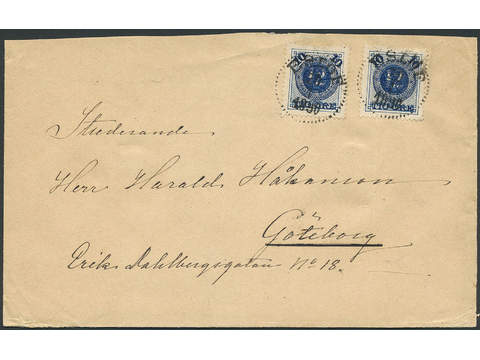 10 10
10 10
Studerande
Herr Harald Håkanson
Göteborg
Erik Dahlbergsgatan No 18.